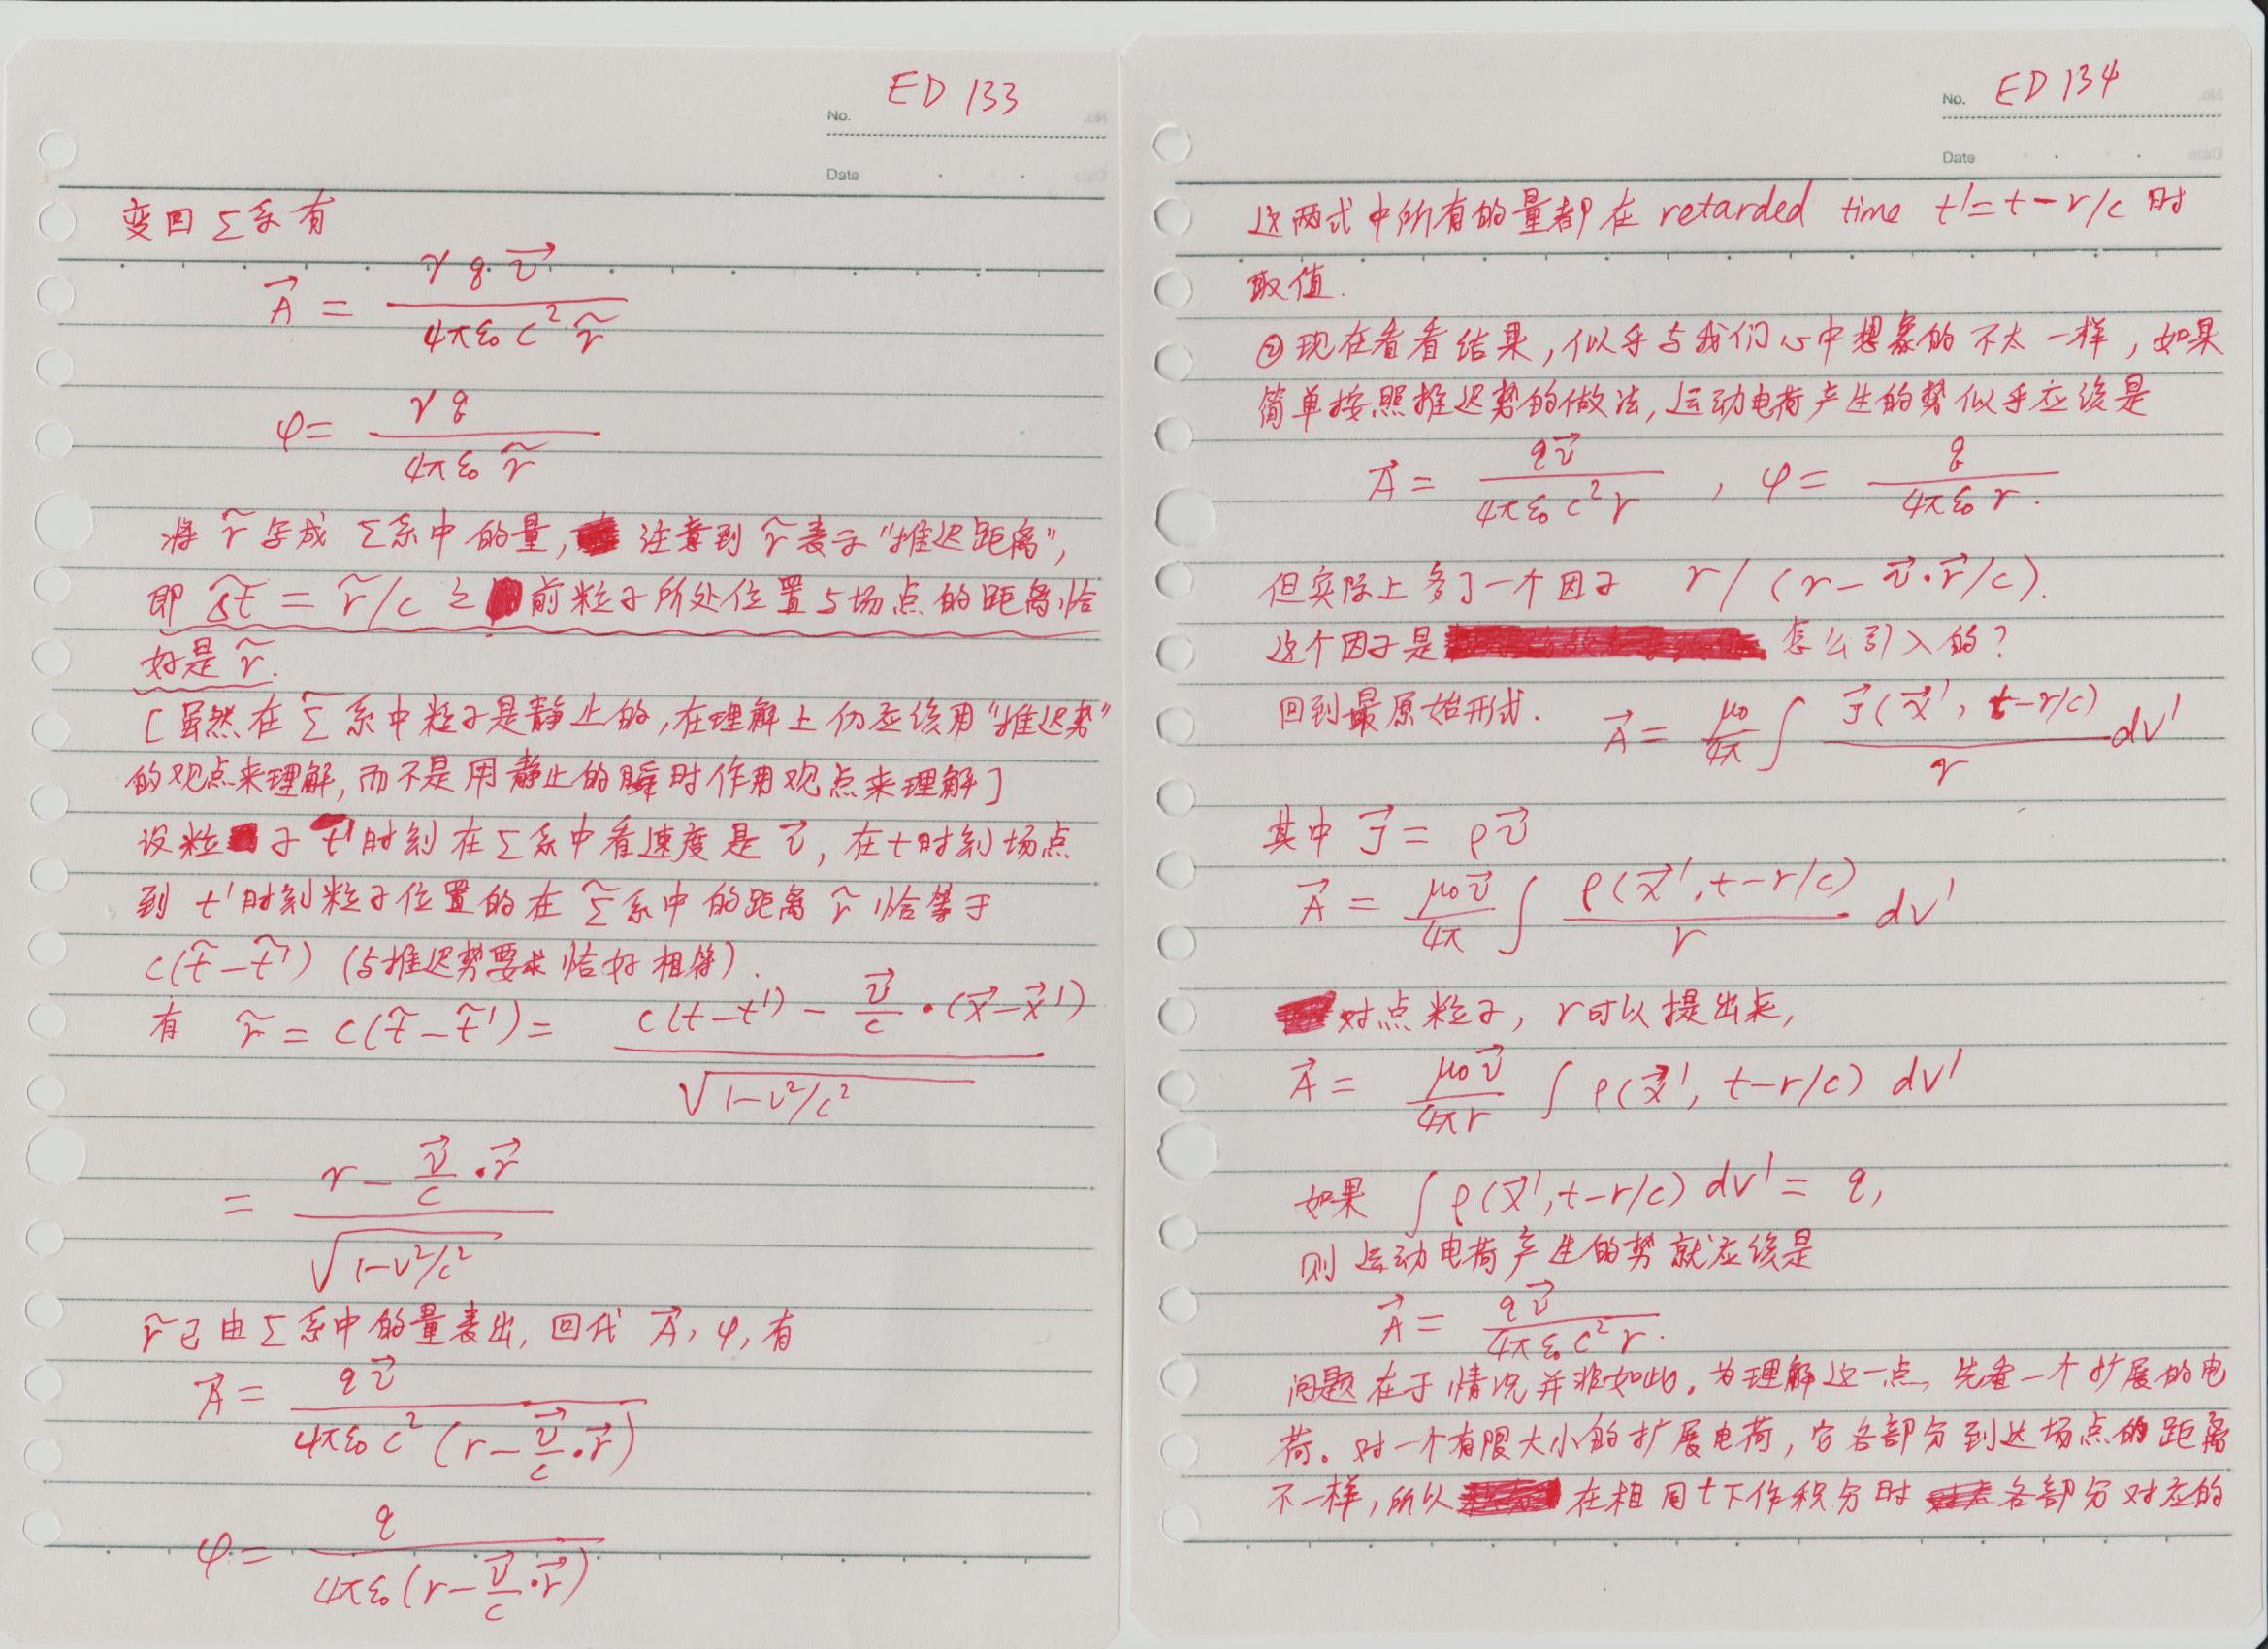 ED 133
No.
Date
变回 Σ系有
A⃗ = γ q v⃗ / 4πε₀ c² r̃
φ = γ q / 4πε₀ r̃
将 r̃ 写成 Σ系中的量, 注意到 r̃ 表示“推迟距离”,
即 Δ̃t = r̃/c 之前粒子所处位置与场点的距离恰
好是 r̃.
[虽然在 Σ̃ 系中粒子是静止的,在理解上仍应该用“推迟势”
的观点来理解,而不是用静止的瞬时作用观点来理解]
设粒子 t' 时刻在Σ系中看速度是 v⃗, 在t时刻场点
到 t' 时刻粒子位置的在 Σ̃ 系中的距离 r̃ 恰等于
c(t̃-t̃') (与推迟势要求恰好相符).
有 r̃ = c(t̃-t̃') = (c(t-t') - v⃗/c · (x⃗-x⃗')) / √(1-v²/c²)
= (r - v⃗/c · r⃗) / √(1-v²/c²)
r̃已由Σ系中的量表出, 回代 A⃗, φ, 有
A⃗ = q v⃗ / 4πε₀ c² (r - v⃗/c · r⃗)
φ = q / 4πε₀ (r - v⃗/c · r⃗)
ED 134
No.
Date
这两式中所有的量都在 retarded time t'=t-r/c 时
取值.
②现在看看结果,似乎与我们心中想象的不太一样,如果
简单按照推迟势的做法,运动电荷产生的势似乎应该是
A⃗ = q v⃗ / 4πε₀ c² r , φ = q / 4πε₀ r.
但实际上多了一个因子 r/(r-v⃗·r⃗/c).
这个因子是怎么引入的?
回到最原始形式. A⃗ = μ₀/4π ∫ J⃗(x⃗', t-r/c) / r dV'
其中 J⃗ = ρv⃗
A⃗ = μ₀v⃗/4π ∫ ρ(x⃗', t-r/c) / r dV'
对点粒子, r可以提出来,
A⃗ = μ₀v⃗/4πr ∫ ρ(x⃗', t-r/c) dV'
如果 ∫ρ(x⃗', t-r/c) dV' = q,
则运动电荷产生的势就应该是
A⃗ = q v⃗ / 4πε₀ c² r.
问题在于情况并非如此。为理解这一点, 先看一个扩展的电
荷。对一个有限大小的扩展电荷, 它各部分到达场点的距离
不一样,所以在相同t下作积分时各部分对应的